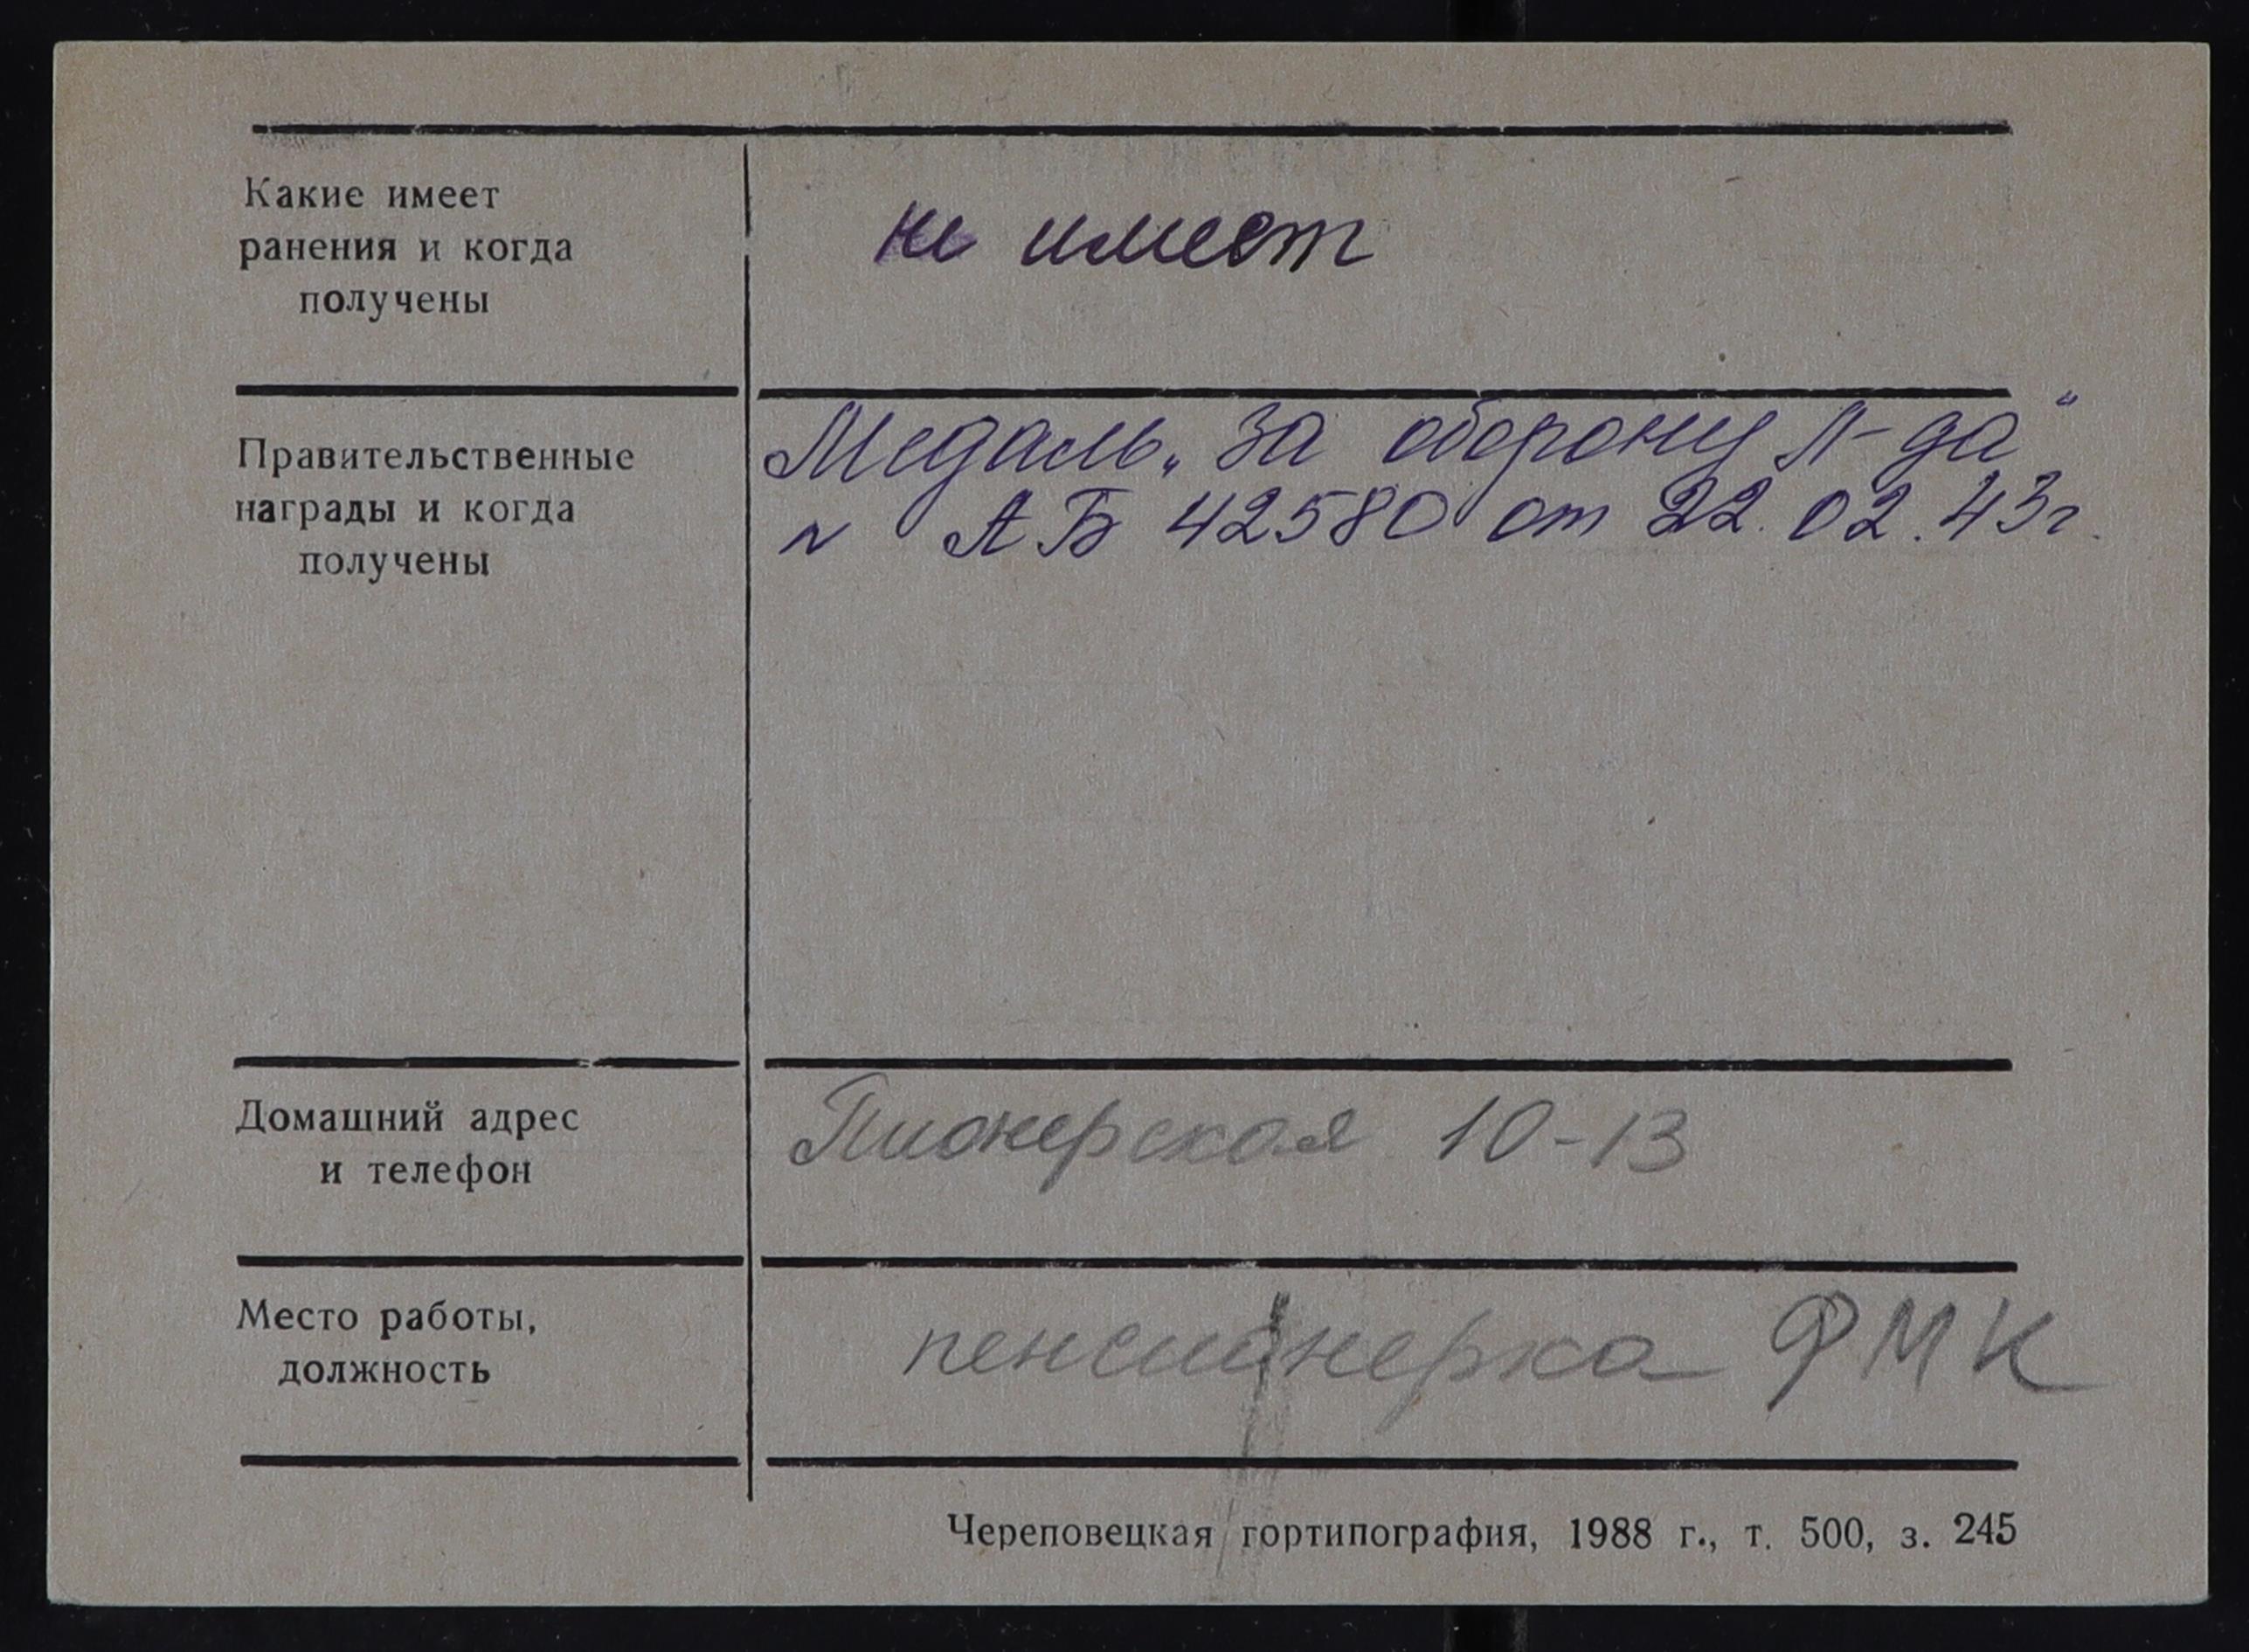 Какие имеет
ранения и когда
получены
не имеет
Правительственные
награды и когда
получены
Медаль „За оборону Л-да“
N АБ 42580 от 22.02.43г.
Домашний адрес
и телефон
Пионерская 10-13
Место работы,
должность
пенсионерка ФМК
Череповецкая гортипография, 1988 г., т. 500, з. 245